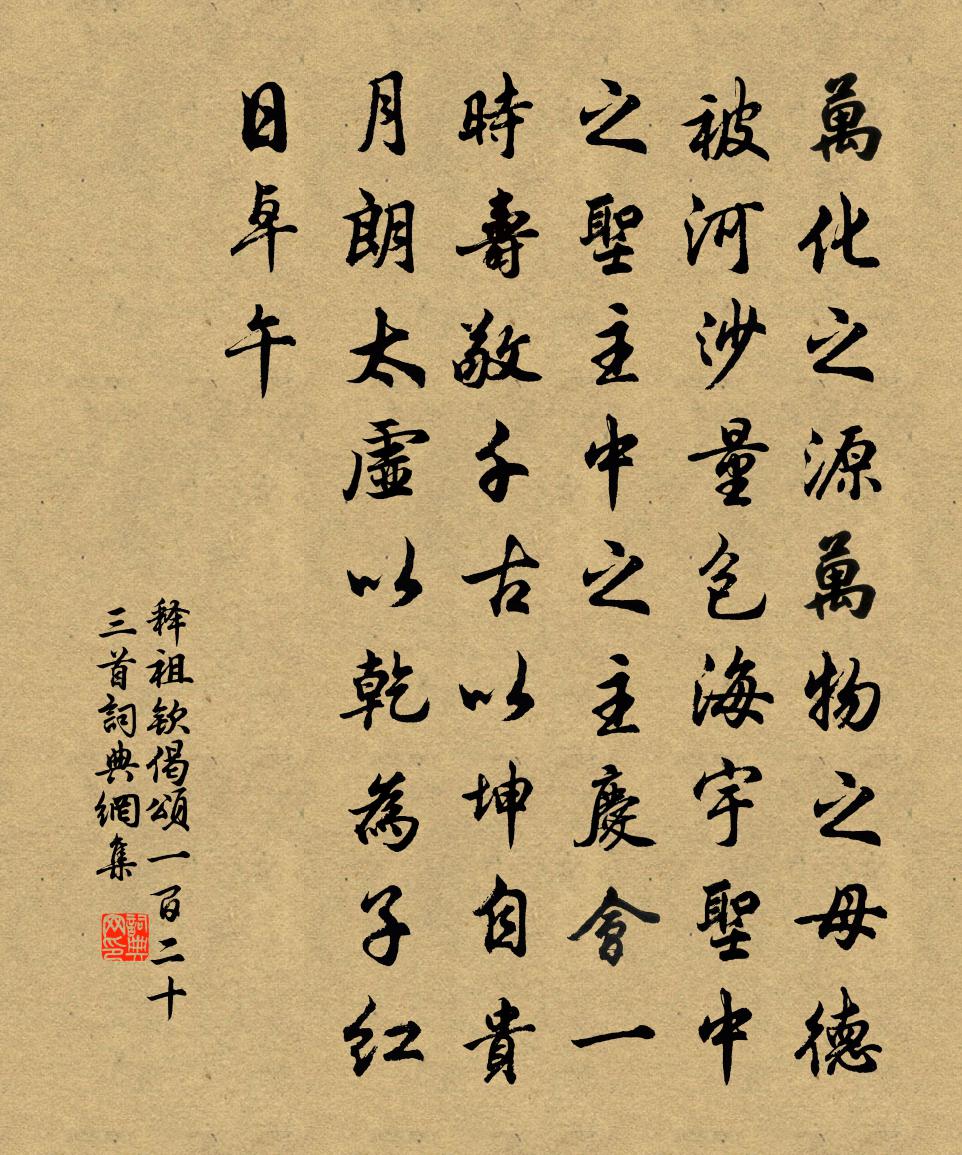 萬化之源萬物之母德
被河沙量包海宇聖中
之聖主中之主慶會一
時壽敵千古以坤自貴
月朗太虛以乾為子紅
日卓午
释祖欽偈頌一百二十
三首詞典網集
詞典
网印